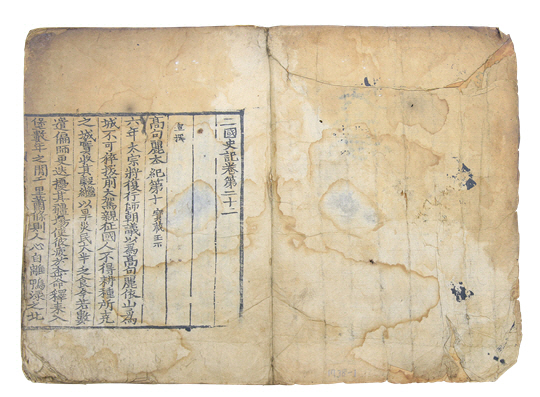 三國史記卷第二十二
宣撰
高句麗本紀第十 寶藏王
六年太宗將復行師朝議以爲高句麗依山爲
城不可猝拔前大駕親征國人不得耕種所克
之城實收其穀繼以旱災民太半乏食今若數
遣偏師更迭擾其疆場使彼疲於奔命釋耒入
堡數年之間千里蕭條則人心自離鴨渌之北